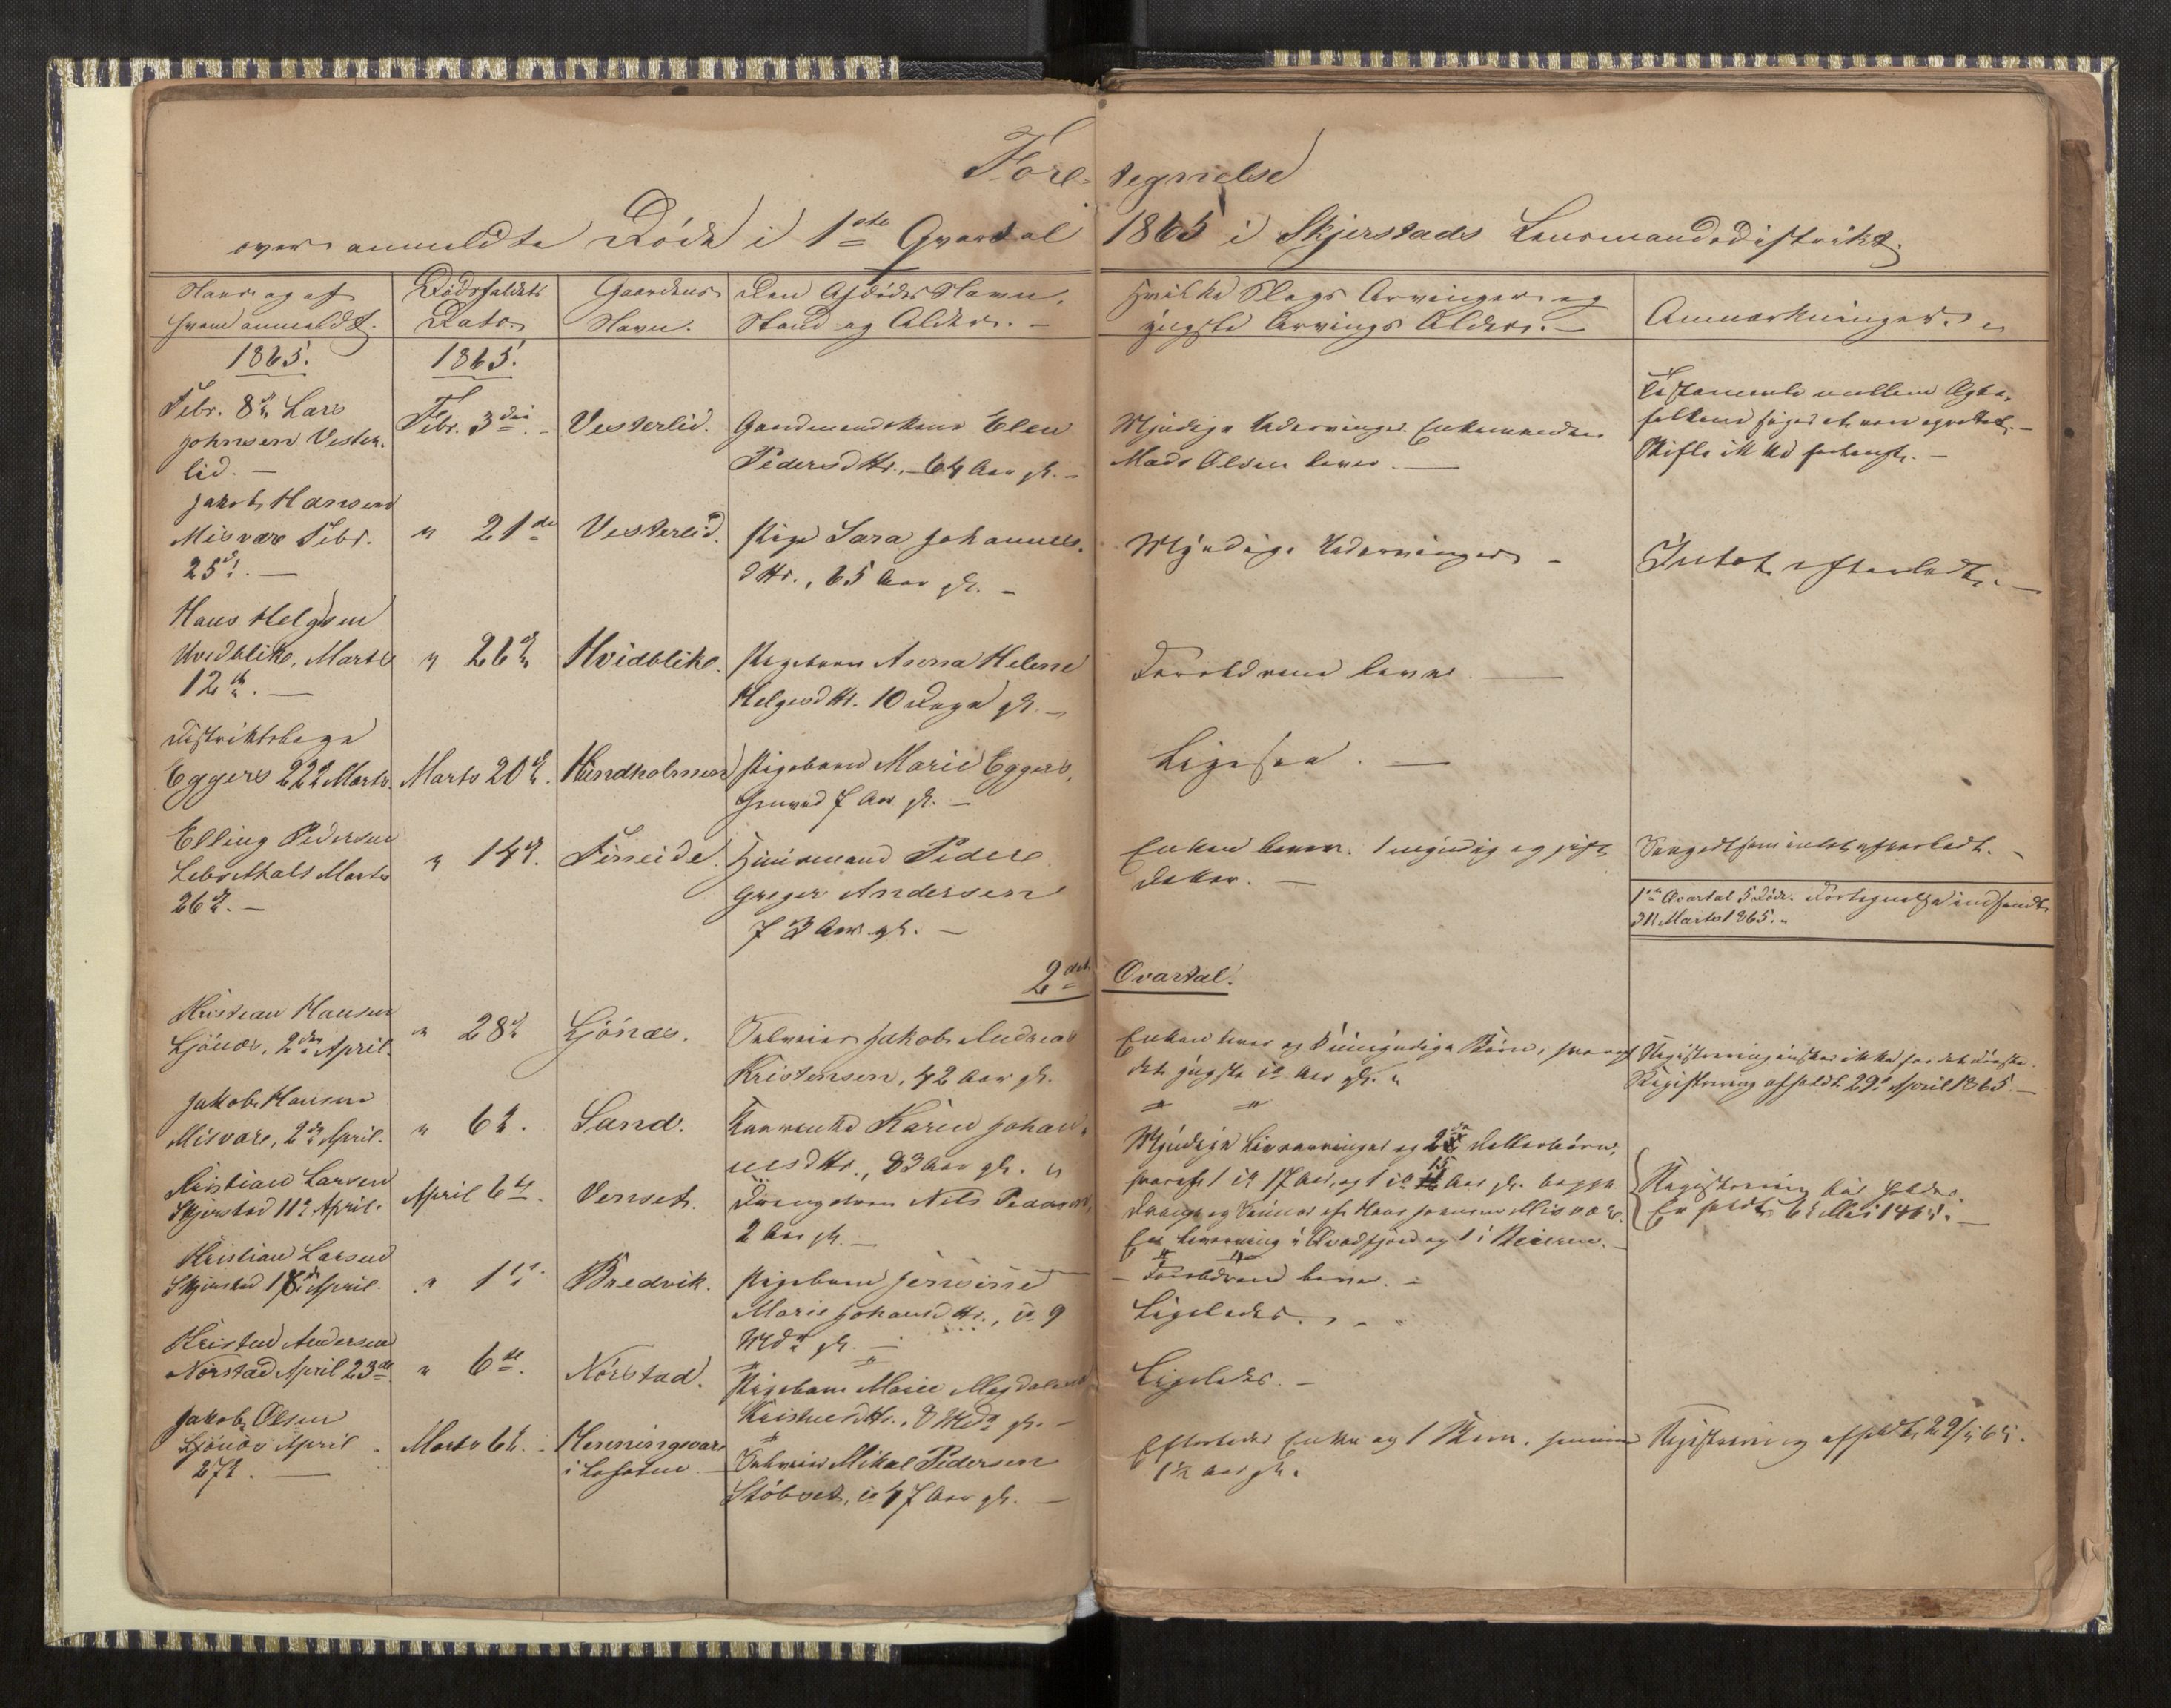 Fortegnelse
over anmeldte Döde i 1ste Qvartal 1865 i Skjerstads Lensmandsdistrikt.
Naar og af
hvem anmeldt.
Dödsfaldets
Dato.
Gaardens
Navn.
Den Afdödes Navn,
Stand og Alder. –
Hvilke Slags Arvinger og
yngste Arvings Alder. –
Anmærkninger.
1865.
1865.
Febr. 8de Lars
Johnsen Vester-
lid. –
Febr. 3die. –
Vesterlid.
Gaardmandskone Elen
Pedersdtr., 64 Aar gl. –
Myndige Udarvinger. Enkemanden
Mads Olsen lever. –
Testamente mellem Ægte-
folkene siges at være oprettet. –
Skifte ikke forlangt. –
Jakob Hansen
Misvær Febr.
25de. –
" 21de
Vesterlid.
Pige Sara Johannes-
dtr., 65 Aar gl. –
Myndige Udarvinger –
Intet efterladt. –
Hans Helgesen
Hvidblik, Marts
12te. –
" 26de
Hvidblik.
Pigebarn Anna Helene
Helgesdtr. 10 Dage gl. –
Forældrene lever. –
Distriktslæge
Eggers 22de Marts.
Marts 20de.
Hundholmen
Pigebarn Marie Eggers,
7 Aar gl. –
Ligesaa. –
Elling Pedersen
Marts
26de. –
" 14de.
Finneide.
Huusmand Peder
Greger Andersen
73 Aar gl. –
Enken lever. 1 myndig og gift
Datter. –
Saagodtsom intet efterladt. –
1ste Qvartal 5 Döde. Fortegnelse indsendt
31 Marts 1865.
2det Qvartal.
Kristian Hansen
Ljönæs, 2den April.
" 28de
Ljönæs.
Selveier Jakob Andreas
Kristensen, 42 Aar gl.
Enken lever og umyndige Börn, hvoraf
det yngste Aar gl. "
Registrering önskes ikke for det förste.
Registrering afholdt 29de April 1865. –
Jakob Hansen
Misvær, 2den April.
" 6te.
Sand.
Karen Johan-
nesdtr., 83 Aar gl. "
Myndige Livsarvinger og 2de Datterbörn,
hvoraf 1 17 Aar, og 1 15 Aar gl. begge
Drenge og Sönner af Hans Jensen Misvær.
En Livsarving i Qvædfjord og 1 i Beieren. –
Registrering bör holdes.
Er holdt 6te Mai 1865. –
Kristian Larsen
Skjerstad 11te April.
April 6te.
Venset.
Drengebarn Nils
2 Aar gl. –
– Forældrene lever. –
Kristian Larsen
Skjerstad 18de April.
" 1ste
Bredvik.
Pigebarn
Marie Johansdtr., 9
Mdr gl. –
Ligeledes.
Kristen Andersen
Nörstad April 23de
" 6te.
Nörstad.
Pigebarn Marie Magdalena
Kristensdtr., 8 Mdr gl. –
Ligeledes. –
Jakob Olsen
Ljönæs April
27de. –
Marts 6te.
Henningsvær
i Lofoten –
Selveier Mikal Pedersen
47 Aar gl. –
Efterlader Enke og 1 Barn,
1½ Aar gl.
Registrering afholdt 29/ 65.